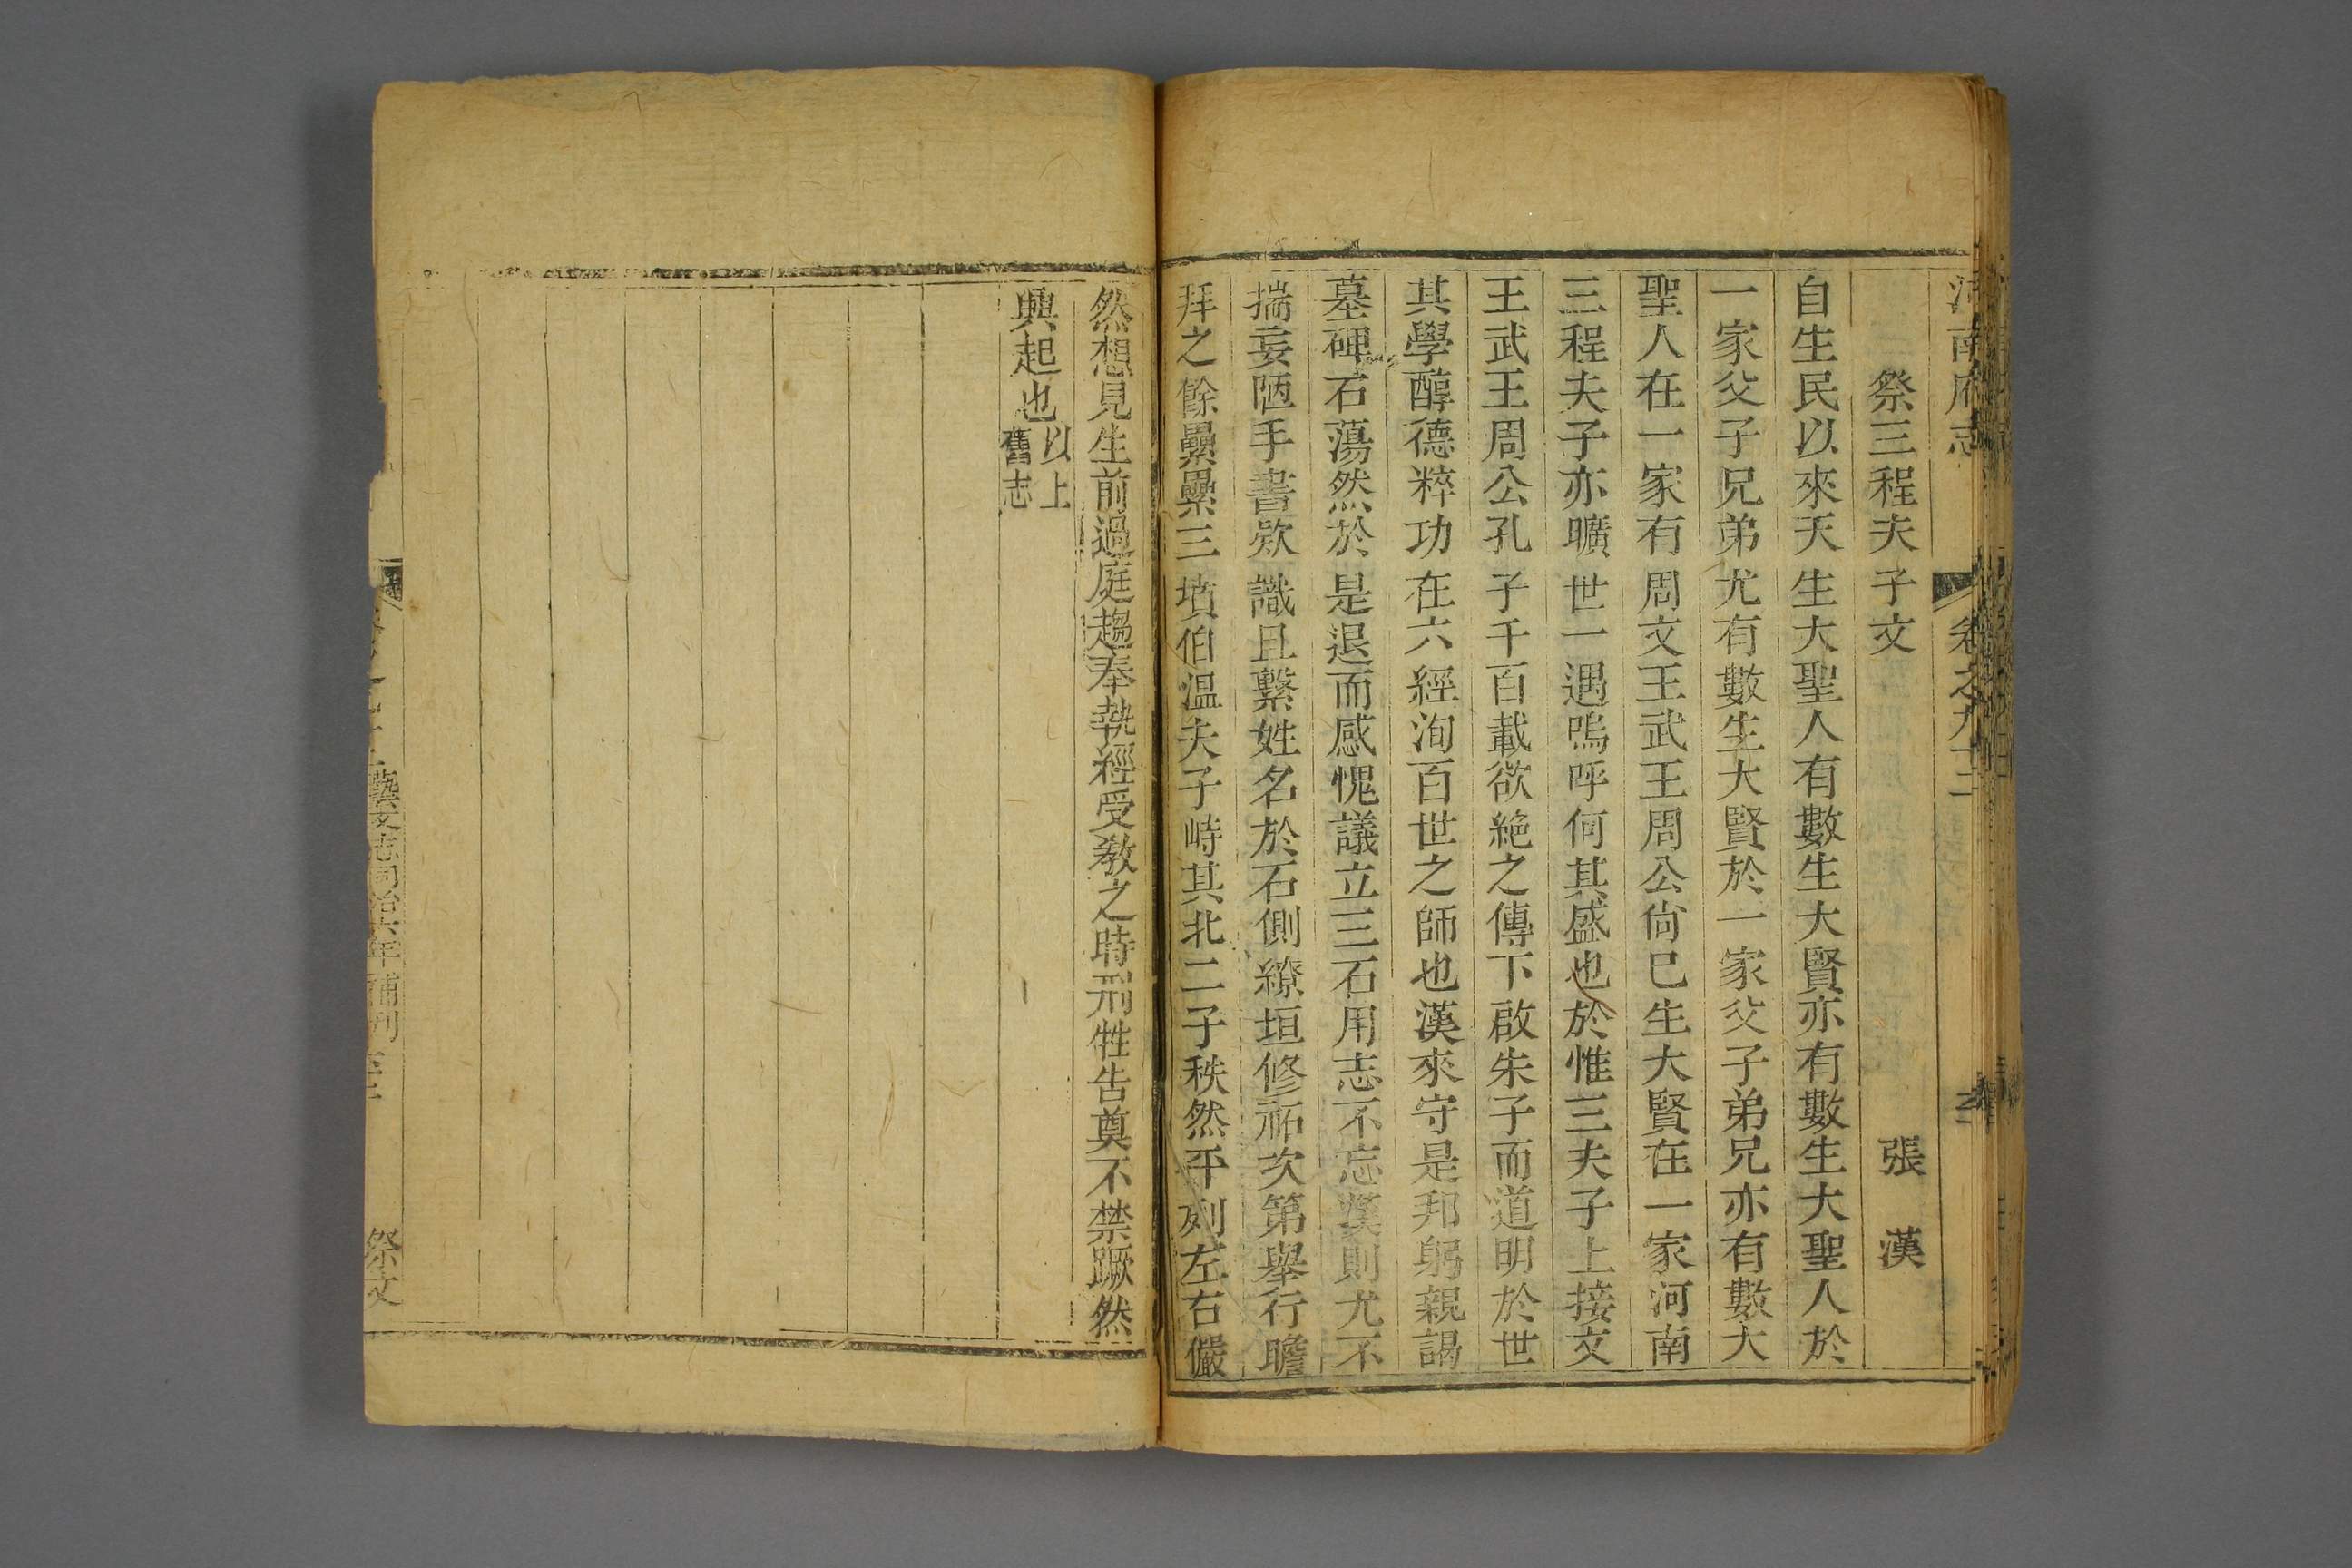 河南府志 卷之九十二
祭三程夫子文 張漢
自生民以來天生大聖人有數生大賢亦有數生大聖人於
一家父子兄弟尤有數生大賢於一家父子弟兄亦有數大
聖人在一家有周文王武王周公尙巳生大賢在一家河南
三程夫子亦曠世一遇嗚呼何其盛也於惟三夫子上接文
王武王周公孔子千百載欲絶之傳下啟朱子而道明於世
其學醇德粹功在六經洵百世之師也漢來守是邦躬親謁
墓碑石蕩然於是退而感愧議立三石用志不忘漢則尤不
揣妄陋手書欵識且繫姓名於石側繚垣修祏次第舉行瞻
拜之餘纍纍三墳伯温夫子峙其北二子秩然平列左右儼
然想見生前過庭趨奉執經受敎之時刑牲告奠不禁蹶然
興起也以上
舊志
藝文志同治六年補刊 祭文